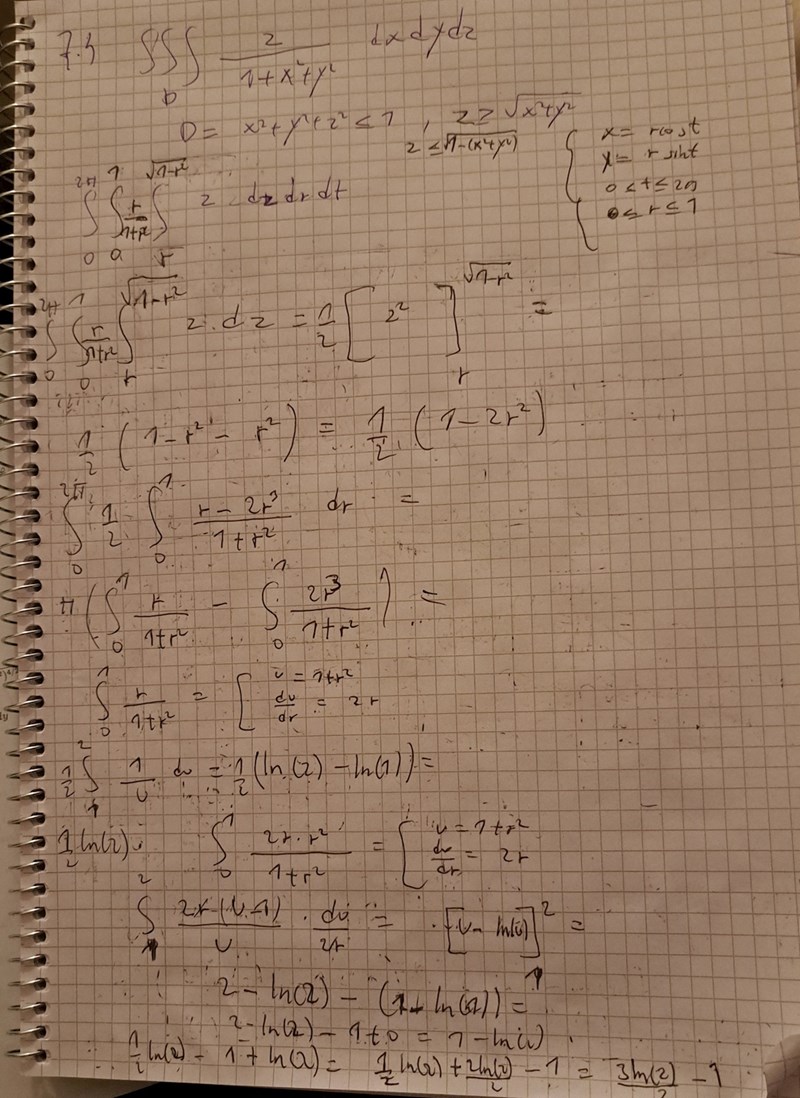 7.4 ∭_D z/(1+x²+y²) dx dy dz
D = x²+y²+z² ≤ 1 , z ≥ √(x²+y²)
z ≤ √(1-(x²+y²))
{ x = r cos t
y = r sin t
0 < t ≤ 2π
0 ≤ r ≤ 1
∫_0^{2π} ∫_0^1 r/(1+r²) ∫_r^{√(1-r²)} z dz dr dt
∫_0^{2π} ∫_0^1 r/(1+r²) ∫_r^{√(1-r²)} z · dz = 1/2 [ z² ]_r^{√(1-r²)} =
1/2 ( 1-r² - r² ) = 1/2 ( 1-2r² )
∫_0^{2π} 1/2 ∫_0^1 (r-2r³)/(1+r²) dr =
π ( ∫_0^1 r/(1+r²) - ∫_0^1 2r³/(1+r²) ) =
∫_0^1 r/(1+r²) = [ u = 1+r²
du/dr = 2r
1/2 ∫_1^2 1/u du = 1/2 (ln(2) - ln(1)) =
1/2 ln(2) ∫_0^1 2r·r²/(1+r²) = [ u = 1+r²
du/dr = 2r
∫_1^2 2r(u-1)/u · du/2r = [u - ln(u)]_1^2 =
2 - ln(2) - (1 - ln(1)) =
2 - ln(2) - 1 + 0 = 1 - ln(2)
1/2 ln(2) - 1 + ln(2) = 1/2 ln(2) + 2ln(2)/2 - 1 = 3ln(2)/2 - 1